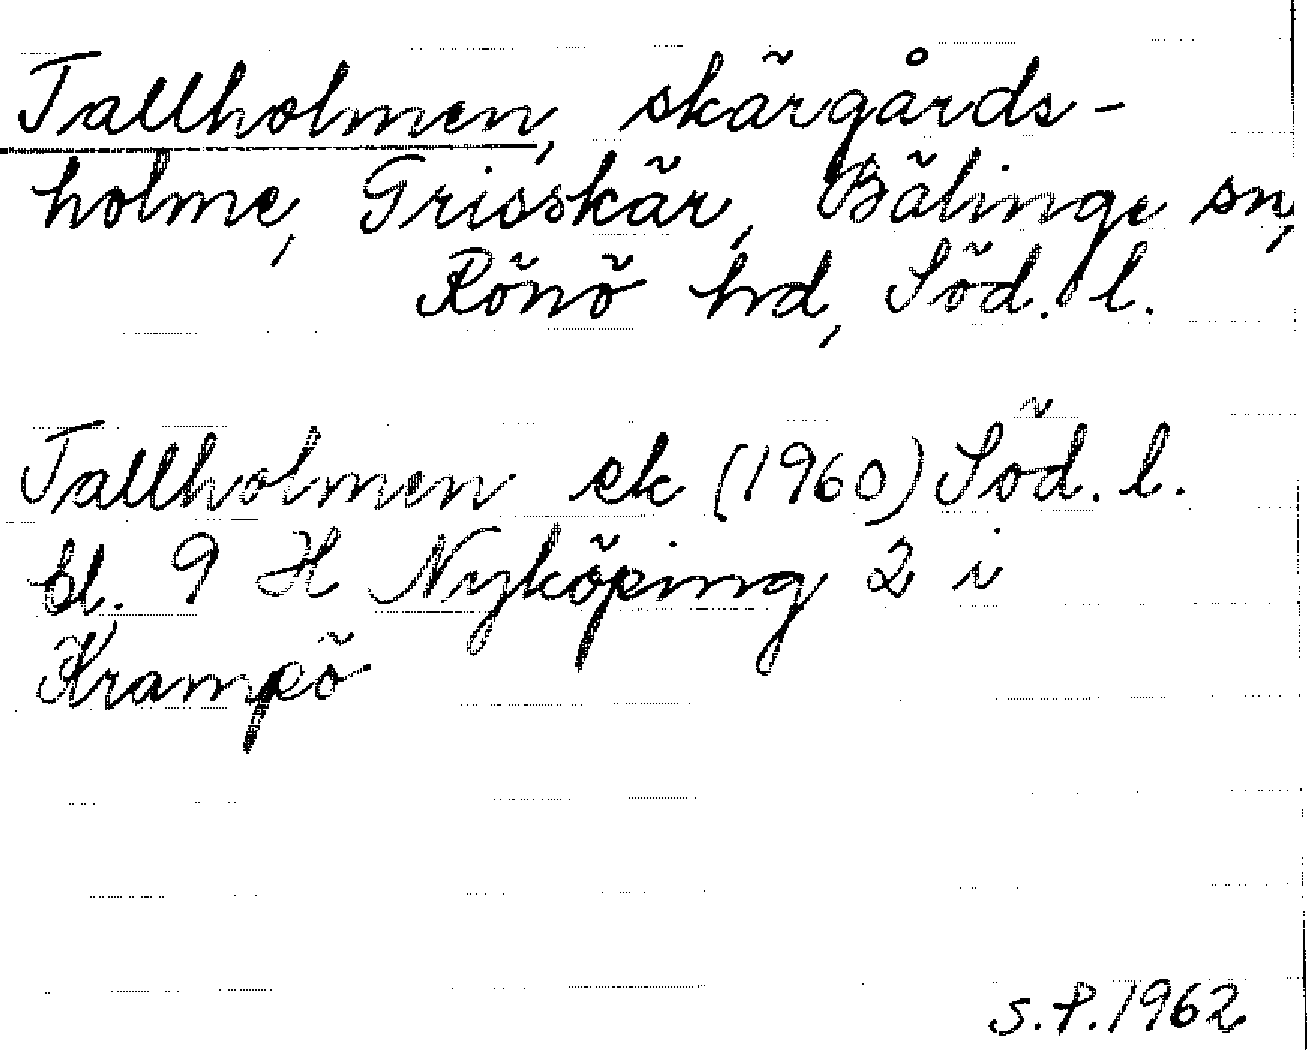 Tallholmen, skärgårds-
holme, Grisskär, Bälinge sn,
Rönö hd, Söd. l.
Tallholmen ek (1960) Söd. l.
bl. 9 H Nyköping 2 i
Krampö
S.P.1962